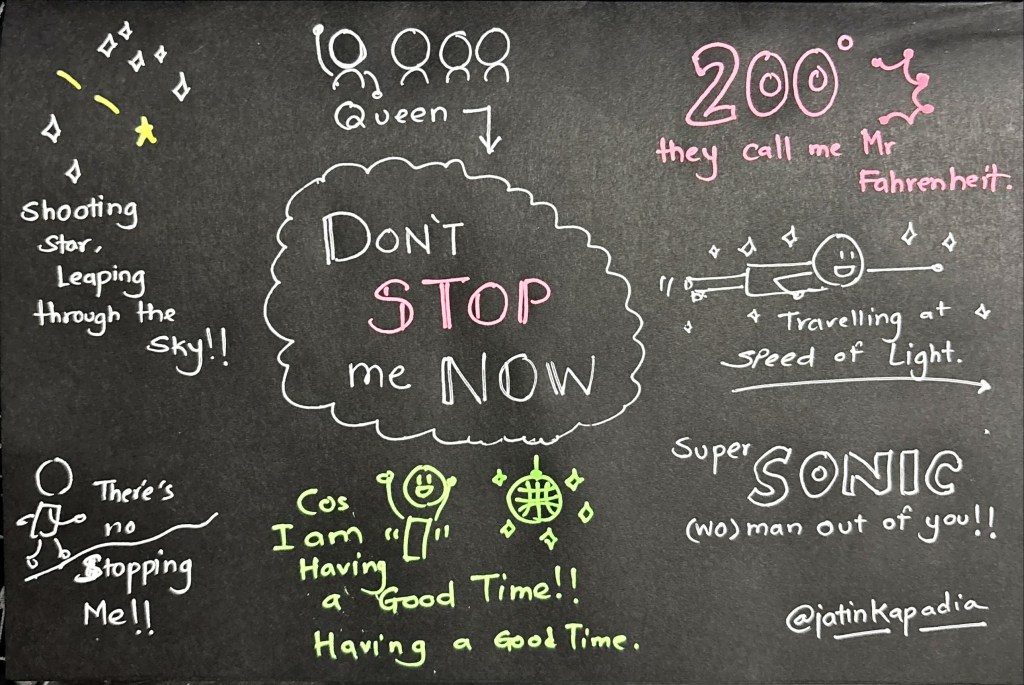 Queen
DON'T
STOP
me NOW
200°
they call me Mr
Fahrenheit.
Shooting
Star,
Leaping
through the
Sky!!
Travelling at
Speed of Light.
Super SONIC
(wo)man out of you!!
There's
no
Stopping
Me!!
Cos
I am
Having
a Good Time!!
Having a Good Time.
@jatinkapadia